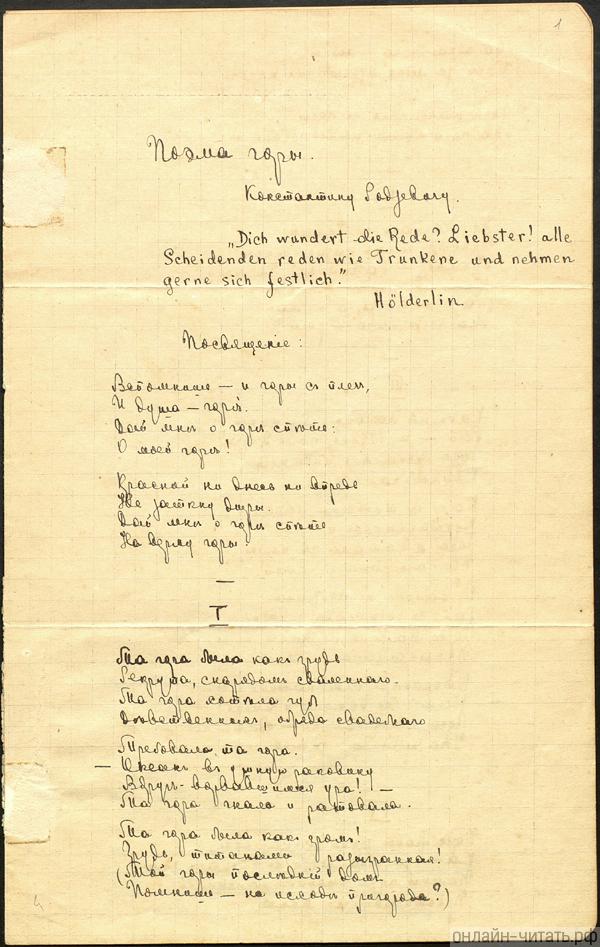 1
Поэма горы.
Константину Родзевичу.
„Dich wundert die Rede? Liebster! alle
Scheidenden reden wie Trunkene und nehmen
gerne sich festlich."
Hölderlin.
Посвященіе:
Вспомнишь — и горы съ плечъ,
И душа — горѣ.
Дай мнѣ о горѣ спѣть:
О моей горѣ!
Красной ни днесь ни впредь
Не заткну дыры.
Дай мнѣ о горѣ спѣть
На верху горы.
—
I
Та гора была какъ грудь
Рекрута, снарядомъ сваленнаго.
Та гора хотѣла губъ
Дѣвственныхъ, обряда свадебнаго
Требовала та гора.
— Океанъ въ ушную раковину
Вдругъ-ворвавшимся ура! —
Та гора гнала и ратовала.
Та гора была какъ громъ!
Грудь, титанами разыгранная!
(Той горы послѣдній домъ
Помнишь — на исходѣ пригорода?)
онлайн-читать.рф